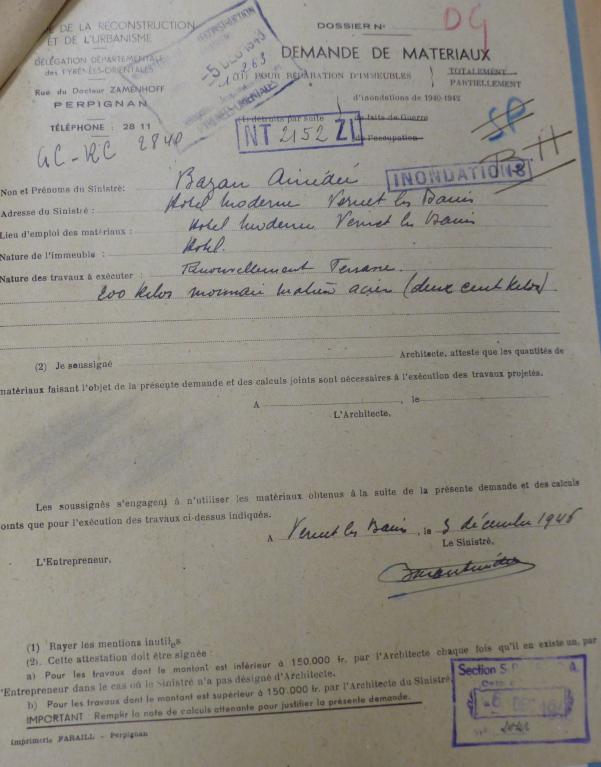 E DE LA RECONSTRUCTION
ET DE L'URBANISME
DÉLÉGATION DÉPARTEMENTALE
des PYRÉNÉES-ORIENTALES
Rue du Docteur ZAMENHOFF
PERPIGNAN
TÉLÉPHONE : 28 11
DOSSIER N°
DG
DEMANDE DE MATERIAUX
(1) POUR RÉPARATION D'IMMEUBLES
TOTALEMENT
PARTIELLEMENT
d'inondations de 1940-1942
(1) détruits par suite
de faits de Guerre
de l'occupation
-5 DEC 1946
NT 2152 ZI
SP
BH
INONDATIONS
Nom et Prénoms du Sinistré: Bazan Amédée
Adresse du Sinistré : Hotel Moderne Vernet les Bains
Lieu d'emploi des matériaux : Hotel Moderne Vernet les Bains
Nature de l'immeuble : Hotel.
Nature des travaux à exécuter : Renouvellement Terrasse.
200 kilos monnaie matière acier (deux cent kilos)
(2) Je soussigné Architecte, atteste que les quantités de
matériaux faisant l'objet de la présente demande et des calculs joints sont nécessaires à l'exécution des travaux projetés.
A , le
L'Architecte,
Les soussignés s'engagent à n'utiliser les matériaux obtenus à la suite de la présente demande et des calculs
oints que pour l'exécution des travaux ci-dessus indiqués.
A Vernet les Bains, le 3 décembre 1946
L'Entrepreneur,
Le Sinistré,
(1) Rayer les mentions inutiles
(2). Cette attestation doit être signée :
a) Pour les travaux dont le montant est inférieur à 150.000 fr. par l'Architecte chaque fois qu'il en existe un, par
'Entrepreneur dans le cas où le Sinistré n'a pas désigné d'Architecte.
b) Pour les travaux dont le montant est supérieur à 150.000 fr. par l'Architecte du Sinistré.
IMPORTANT : Remplir la note de calculs attenante pour justifier la présente demande.
Imprimerie FARAILL - Perpignan
Section S.
DEC